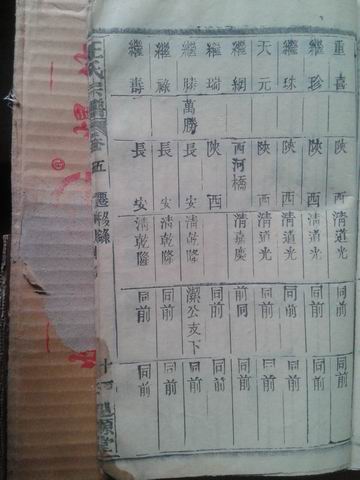 重喜 陝西 清道光 同前 同前
繼珍 陝西 清道光 同前 同前
繼珠 陝西 清道光 同前 同前
天元 陝西 清道光 同前 同前
繼綱 西河橋 清嘉慶 前同 同前
繼瑞 陝西 同前 同前
繼勝 萬勝 長安 清乾隆 潔公支下 同前
繼祿 長安 清乾隆 同前 同前
繼壽 長安 清乾隆 同前 同前
王氏宗譜 卷五 遷移錄